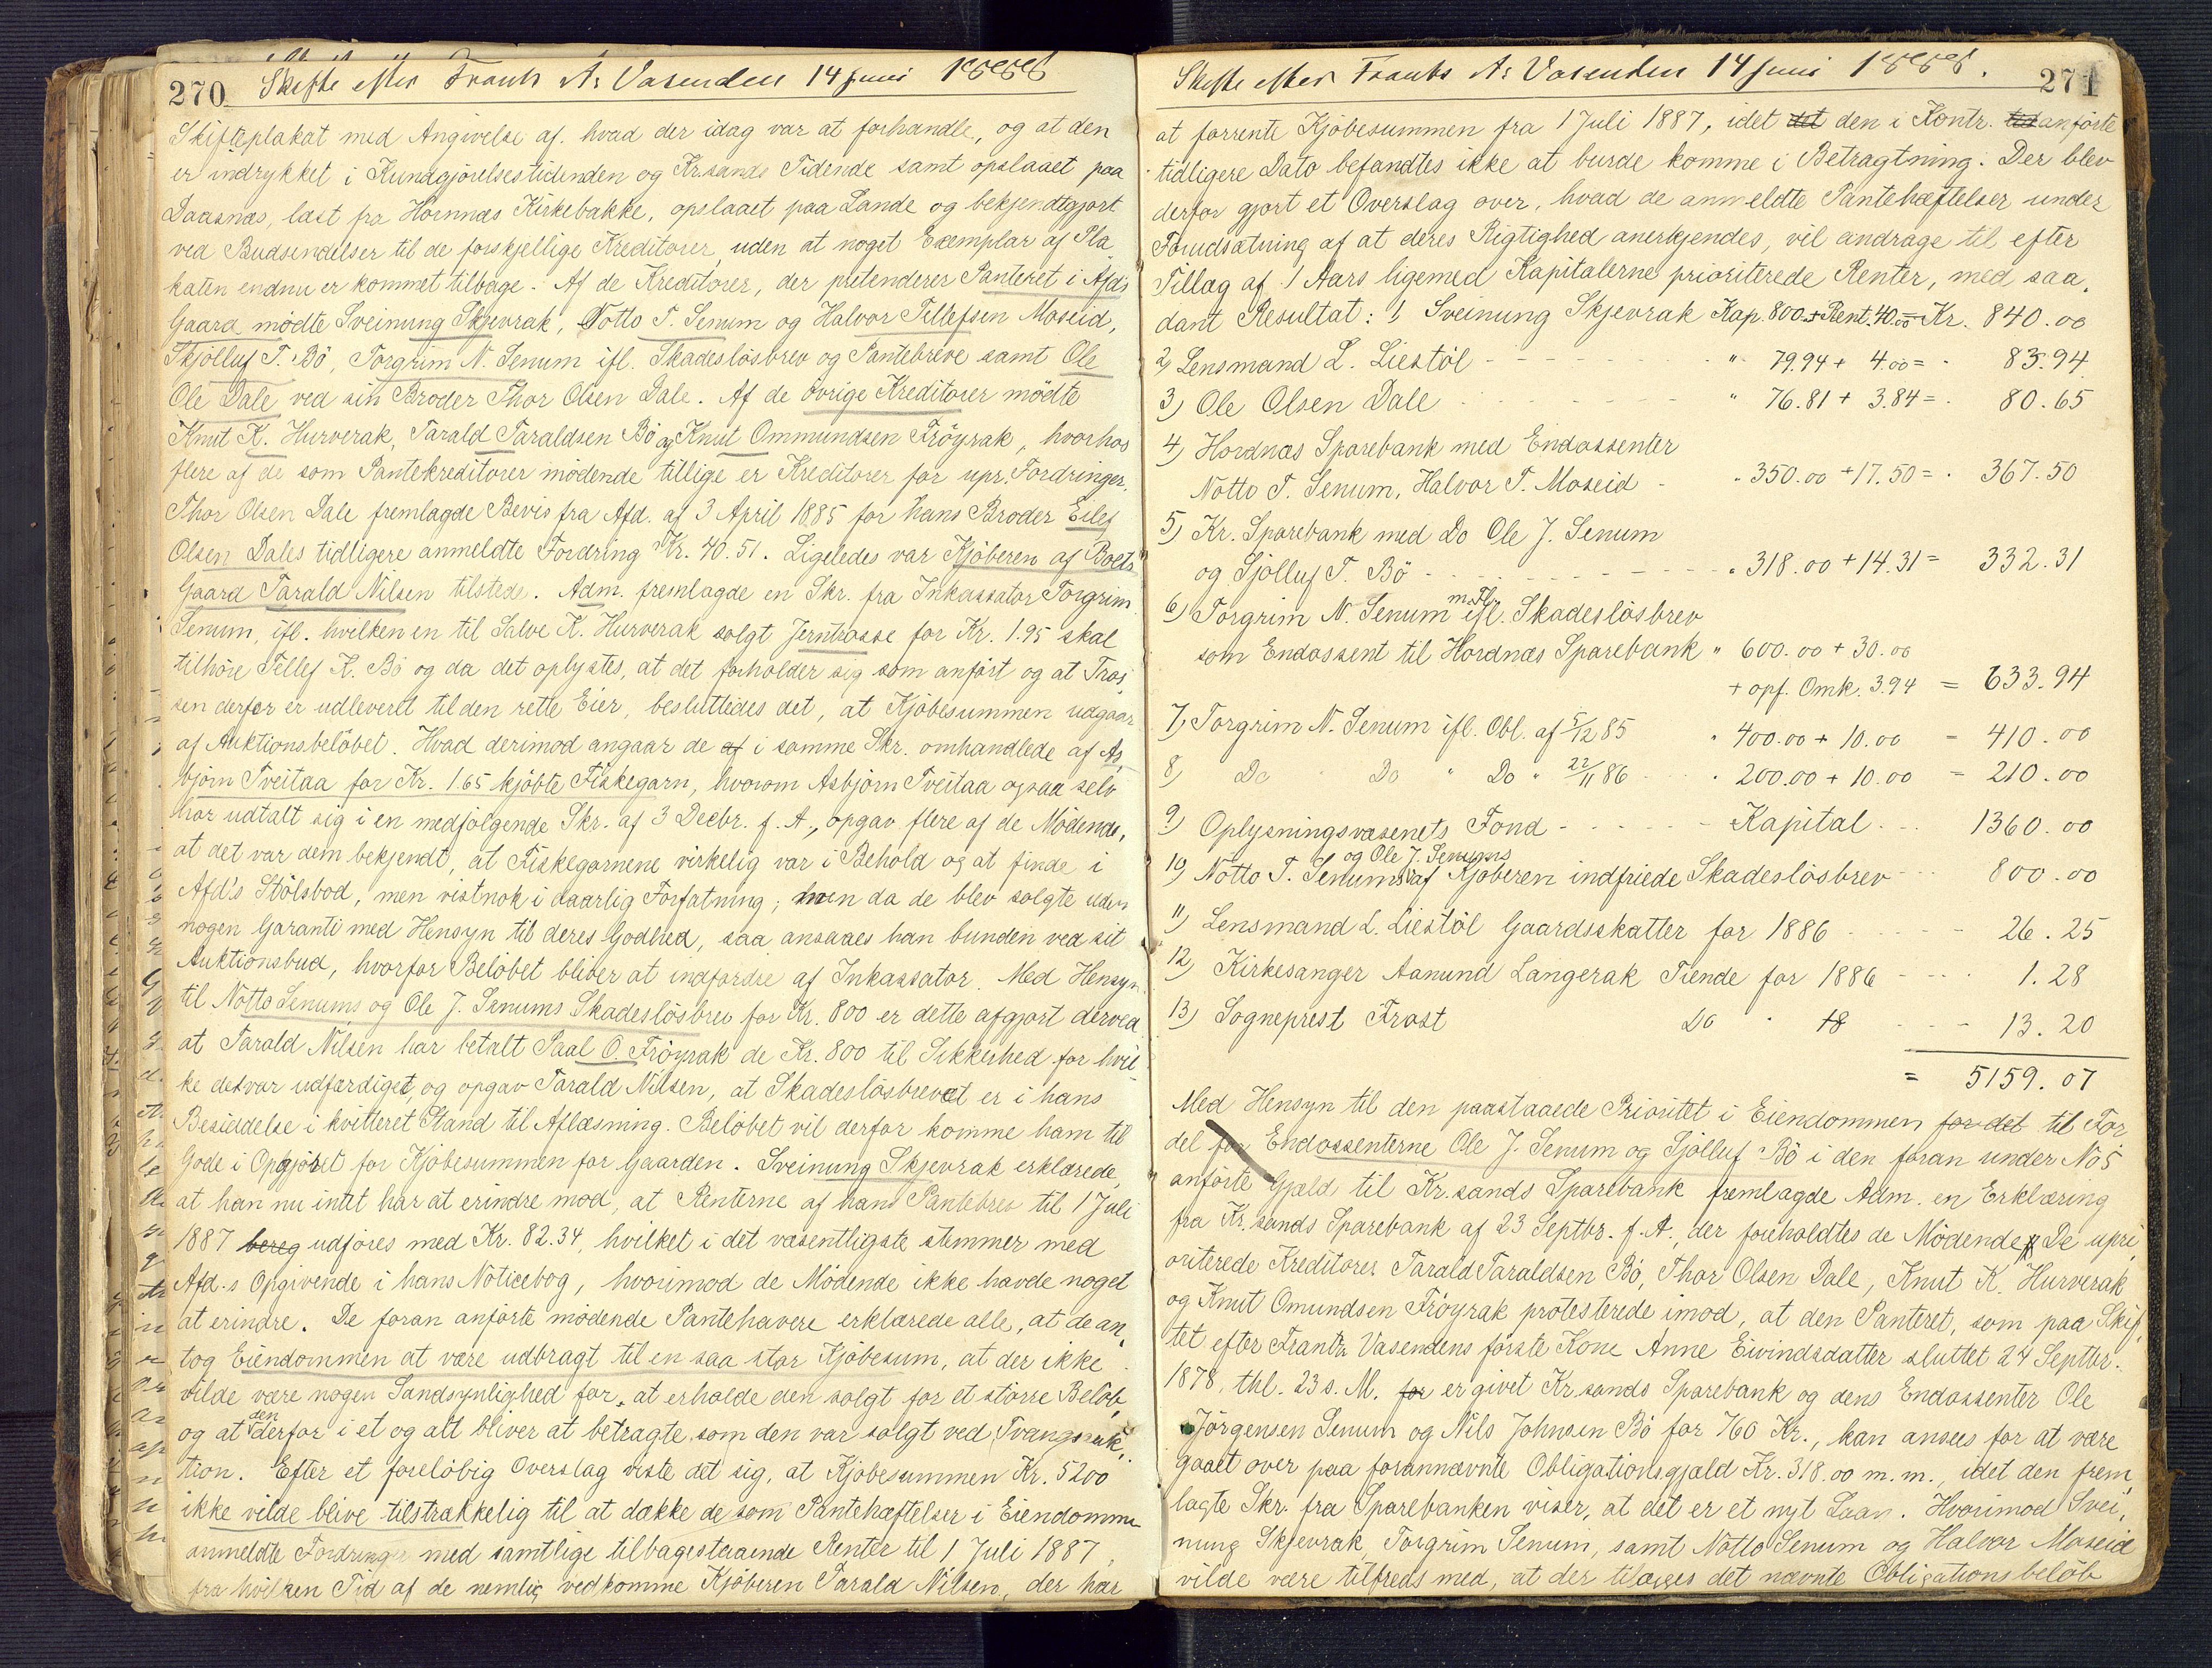 270 Skifte efter Frants A. Vasenden 14 Juni 1888
Skifteplakat med Angivelse af hvad der idag var at forhandle, og at den
er indrykket i Kundgjørelsestidenden og Kr.sands Tidende samt opslaaet paa
Daasnæs, læst fra Hornnæs Kirkebakke, opslaaet paa Lande og bekjendtgjort
ved Budsendelser til de forskjellige Kreditorer, uden at noget Exemplar af Pla
katen endnu er kommet tilbage. Af de Kreditorer, der pretenderer Panteret i Afds
Gaard mødte Sveinung Skjevrak, Notto T. Senum og Halvor Tellefsen Moseid,
Skjølluf T. Bø, Torgrim N. Senum ifl. Skadesløsbrev og Pantebreve samt Ole
Ole Dale ved sin Broder Thor Olsen Dale. Af de øvrige Kreditorer mødte
Knut K. Hurverak, Tarald Taraldsen Bø og Knut Ommundsen Frøyrak, hvorhos
flere af de som Pantekreditorer mødende tillige er Kreditorer for upr. Fordringer.
Thor Olsen Dale fremlagde Bevis fra Afd. af 3 April 1885 for hans Broder Eilef
Olsen Dales tidligere anmeldte Fordring Kr. 40.51. Ligeledes var Kjøberen af Boets
Gaard Tarald Nilsen tilstede. Adm. fremlagde en Skr. fra Inkassator Torgrim
Senum, ifl. hvilken en til Salve K. Hurverak solgt Jerntrosse for Kr. 1.95 skal
tilhøre Tellef K. Bø og da det oplystes, at det forholder sig som anført og at Tros
sen derfor er udleveret til den rette Eier, besluttedes det, at Kjøbesummen udgaar
af Auktionsbeløbet. Hvad derimod angaar de af i samme Skr. omhandlede af As
bjørn Tveitaa for Kr. 1.65 kjøbte Fiskegarn, hvorom Asbjørn Tveitaa ogsaa selv
har udtalt sig i en medfølgende Skr. af 3 Decbr. f. A., opgav flere af de Mødende,
at det var dem bekjendt, at Fiskegarnene virkelig var i Behold og at finde i
Afd's Stølsbod, men vistnok i daarlig Forfatning; men da de blev solgte uden
nogen Garanti med Hensyn til deres Godhed, saa ansaaes han bunden ved sit
Auktionsbud, hvorfor Beløbet bliver at indfordre af Inkassator. Med Hensyn
til Notto Senums og Ole J. Senums Skadesløsbrev for Kr. 800 er dette afgjort derved
at Tarald Nilsen har betalt Paal O. Frøyrak de Kr. 800 til Sikkerhed for hvil
ke det var udfærdiget, og opgav Tarald Nilsen, at Skadesløsbrevet er i hans
Besiddelse i kvitteret Stand til Aflæsning. Beløbet vil derfor komme ham til
Gode i Opgjøret for Kjøbesummen for Gaarden. Sveinung Skjevrak erklærede,
at han nu intet har at erindre mod, at Renterne af hans Pantebrev til 1 Juli
1887 bereg udføres med Kr. 82.34, hvilket i det væsentligste stemmer med
Afd.s Opgivende i hans Noticebog, hvorimod de Mødende ikke havde noget
at erindre. De foran anførte mødende Pantehavere erklærede alle, at de an
tog Eiendommen at være udbragt til en saa stor Kjøbesum, at der ikke
vilde være nogen Sandsynlighed for, at erholde den solgt for et større Beløb,
og at den derfor i et og alt bliver at betragte som den var solgt ved Tvangsauk
tion. Efter et foreløbig Overslag viste det sig, at Kjøbesummen Kr. 5200
ikke vilde blive tilstrækkelig til at dække de som Pantehæftelser i Eiendommen
anmeldte Fordringer med samtlige tilbagestaaende Renter til 1 Juli 1887,
fra hvilken Tid af de nemlig vedkomme Kjøberen Tarald Nilsen, der har
Skifte efter Frants A. Vasenden 14 Juni 1888. 271
at forrente Kjøbesummen fra 1 Juli 1887, idet det den i Kontr. tid anførte
tidligere Dato befandtes ikke at burde komme i Betragtning. Der blev
derfor gjort et Overslag over, hvad de anmeldte Pantehæftelser under
Forudsætning af at deres Rigtighed anerkjendes, vil andrage til efter
Tillæg af 1 Aars ligemed Kapitalerne prioriterede Renter, med saa
dant Resultat: 1, Sveinung Skjevrak Kap. 800 + Rent. 40.00 = Kr. 840.00
2, Lensmand L. Liestøl " 79.94 + 4.00 = 83.94
3) Ole Olsen Dale " 76.81 + 3.84 = 80.65
4) Hordnæs Sparebank med Endossenter
Notto T. Senum, Halvor T. Moseid " 350.00 + 17.50 = 367.50
5) Kr. Sparebank med Do Ole J. Senum
og Sjølluf T. Bø " 318.00 + 14.31 = 332.31
6) Torgrim N. Senum m. Fl. ifl. Skadesløsbrev
som Endossent til Hordnæs Sparebank " 600.00 + 30.00
+ opf. Omk. 3.94 = 633.94
7) Torgrim N. Senum ifl. Obl. af 5/12 85 " 400.00 + 10.00 = 410.00
8) Do " Do " Do " 22/11 86 " 200.00 + 10.00 = 210.00
9) Oplysningsvæsenets Fond Kapital 1360.00
10) Notto T. Senums og Ole J. Senums af Kjøberen indfriede Skadesløsbrev 800.00
11) Lensmand L. Liestøl Gaardsskatter for 1886 26.25
12) Kirkesanger Aanund Langerak Tiende for 1886 1.28
13) Sogneprest Frost Do " 18 13.20
= 5159.07
Med Hensyn til den paastaaede Prioritet i Eiendommen for det til For
del for Endossenterne Ole J. Senum og Sjølluf Bø i den foran under No 5
anførte Gjæld til Kr.sands Sparebank fremlagde Adm. en Erklæring
fra Kr.sands Sparebank af 23 Septbr. f. A., der foreholdtes de Mødende. De upri
oriterede Kreditorer Tarald Taraldsen Bø, Thor Olsen Dale, Knut K. Hurverak
og Knut Omundsen Frøyrak protesterede imod, at den Panteret, som paa Skif
tet efter Frantz Vasendens første Kone Anne Eivindsdatter sluttet 24 Septbr.
1878, thl. 23 s. M. for er givet Kr.sands Sparebank og dens Endossenter Ole
Jørgensen Senum og Nils Johnsen Bø for 760 Kr., kan ansees for at være
gaaet over paa forannævnte Obligationsgjæld Kr. 318.00 m. m., idet den frem
lagte Skr. fra Sparebanken viser, at det er et nyt Laan. Hvorimod Svei
nung Skjevrak, Torgrim Senum, samt Notto Senum og Halvor Moseid
vilde være tilfreds med, at der tillægges det nævnte Obligationsbeløb